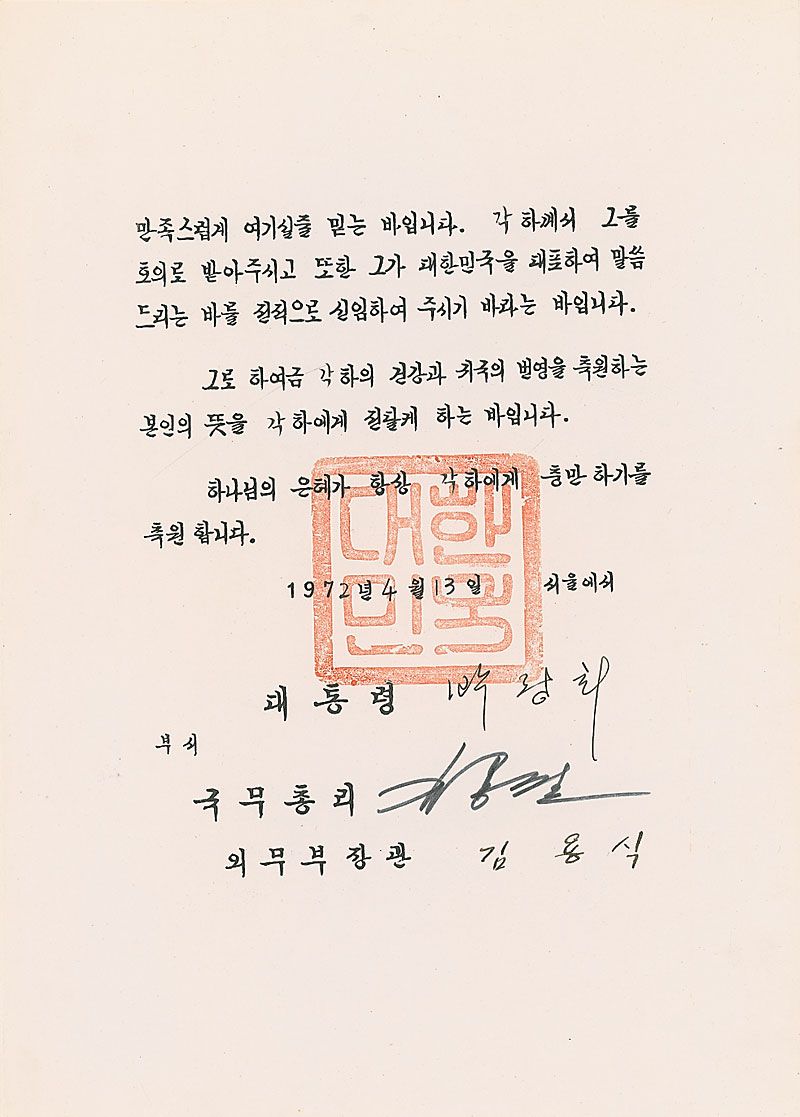 만족스럽게 여기실줄 믿는 바입니다. 각하께서 그를
호의로 받아주시고 또한 그가 대한민국을 대표하여 말씀
드리는 바를 전적으로 신임하여 주시기 바라는 바입니다.
그로 하여금 각하의 건강과 귀국의 번영을 축원하는
본인의 뜻을 각하에게 전달케 하는 바입니다.
하나님의 은혜가 항상 각하에게 충만하기를
축원합니다.
대한
민국
1972년 4월 13일 서울에서
대통령 박정희
부서
국무총리 김종필
외무부장관 김용식